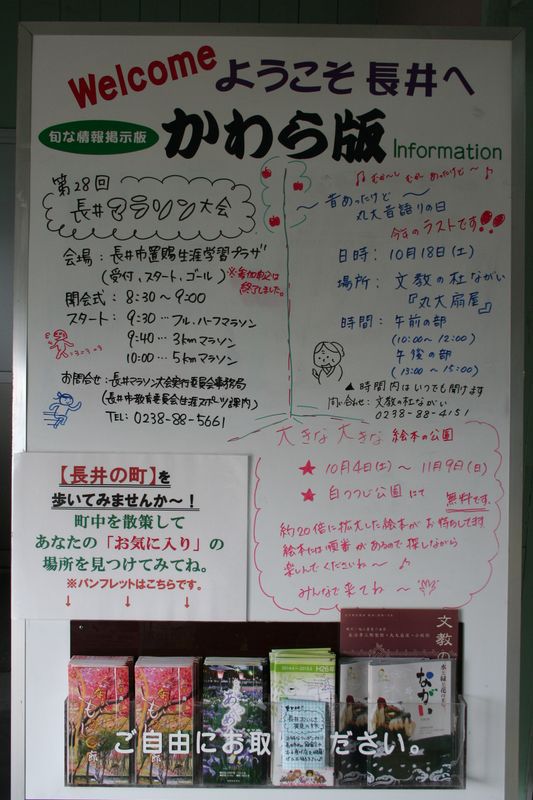 Welcome ようこそ 長井へ
旬な情報掲示版
かわら版
Information
第28回
長井マラソン大会
会場：長井市置賜生涯学習プラザ
(受付、スタート、ゴール)
※参加申込は
終了しました。
開会式：8:30〜9:00
スタート：9:30…フル、ハーフマラソン
9:40…3kmマラソン
10:00…5kmマラソン
お問合せ：長井マラソン大会実行委員会事務局
(長井市教育委員会生涯スポーツ課内)
TEL：0238-88-5661
〜昔あったけど〜
丸大扇語りの日
今年のラストです!!
日時：10月18日(土)
場所：文教の杜ながい
『丸大扇屋』
時間：午前の部
(10:00〜12:00)
午後の部
(13:00〜15:00)
▲時間内はいつでも聞けます
問い合わせ：文教の杜ながい
0238-88-4151
大きな大きな絵本の公園
★ 10月4日(土)〜11月9日(日)
★ 白つつじ公園にて
無料です。
約20倍に拡大した絵本がお待ちしてます
絵本には順番があるので探しながら
楽しんでくださいね〜♪
みんなで来てね〜
【長井の町】を
歩いてみませんか〜！
町中を散策して
あなたの「お気に入り」の
場所を見つけてみてね。
※パンフレットはこちらです。
↓ ↓ ↓
文教の
水と緑と花の
ながい
あやめ
H26年
ご自由にお取りください。